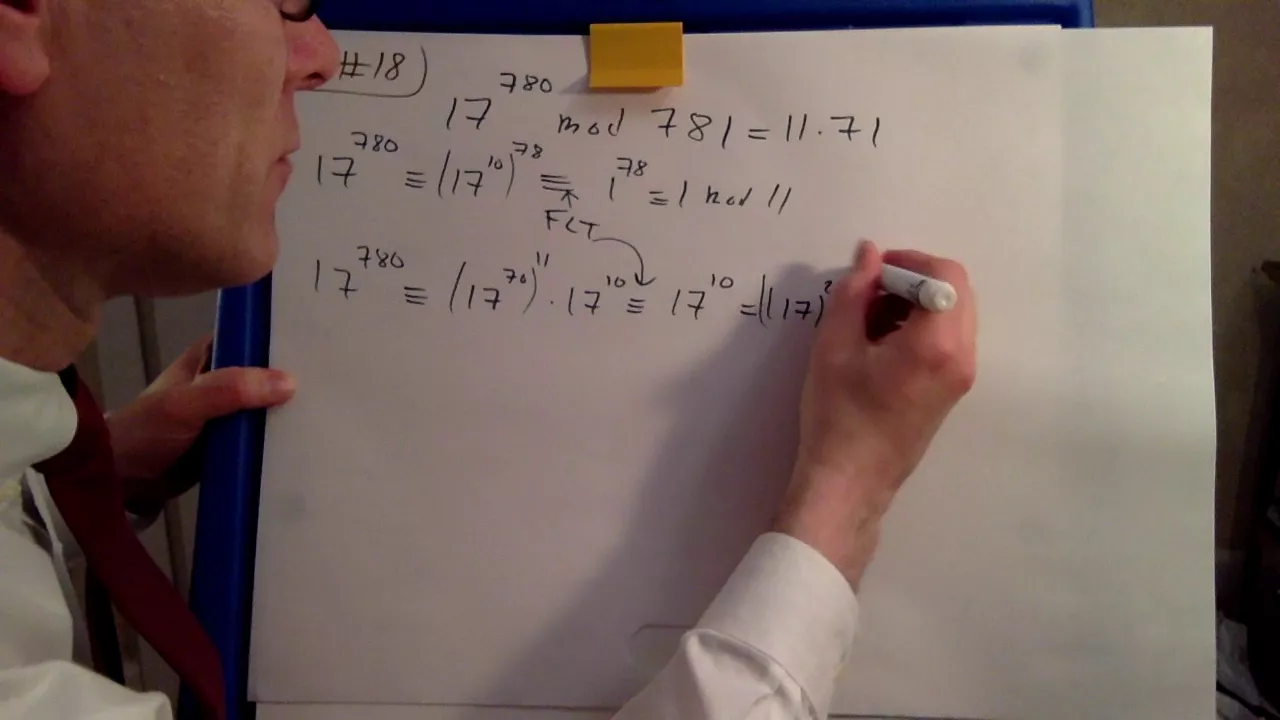 #18)
17^780 mod 781 = 11.71
17^780 ≡ (17^10)^78 ≡ 1^78 ≡ 1 mod 11
FLT
17^780 ≡ (17^70)^11 · 17^10 ≡ 17^10 = ((17)^2